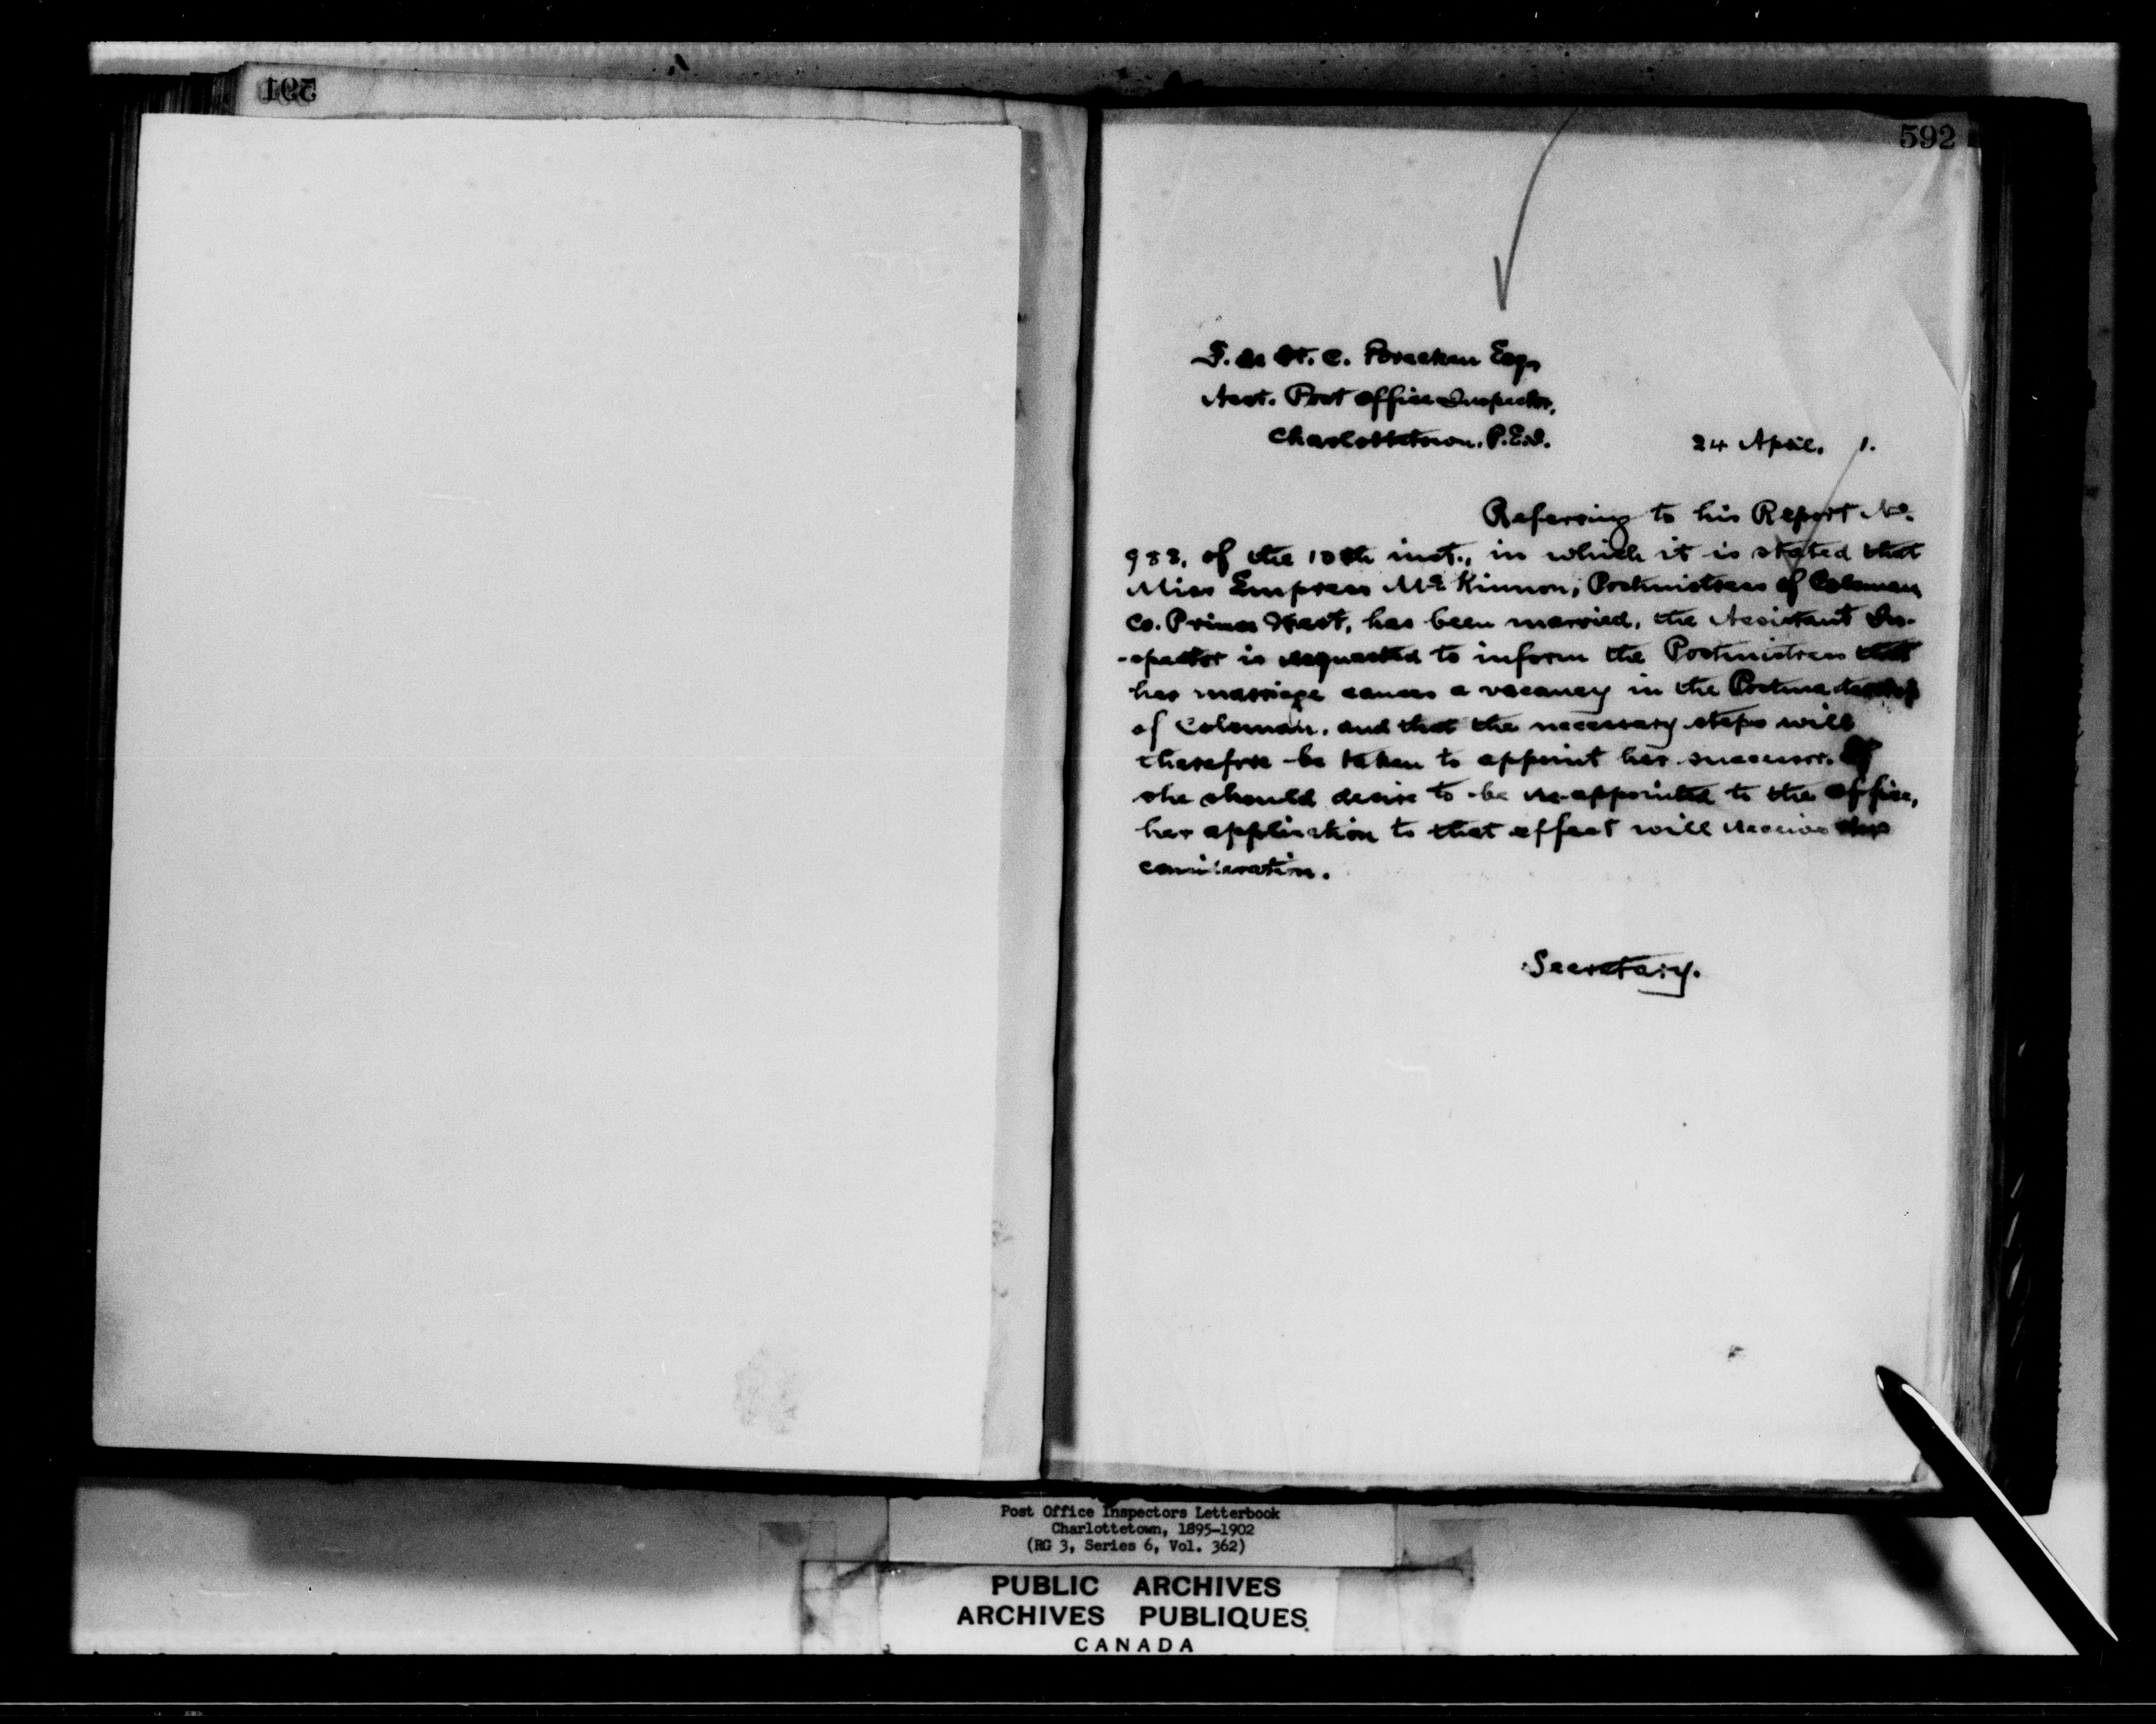 591
592
F. de St. C. Brecken Esq
Asst. Post Office Inspector,
Charlottetown. P.E.I.
24 April, 1.
Referring to his Report No.
988, of the 10th inst., in which it is stated that
Miss Empress McKinnon, Postmistress of Coleman
Co. Prince West, has been married, the Assistant In-
-spector is requested to inform the Postmistress that
her marriage causes a vacancy in the Postmastership
of Coleman, and that the necessary steps will
therefore be taken to appoint her successor. If
she should desire to be re-appointed to the office,
her application to that effect will receive
consideration.
Secretary.
Post Office Inspectors Letterbook
Charlottetown, 1895-1902
(RG 3, Series 6, Vol. 362)
PUBLIC ARCHIVES
ARCHIVES PUBLIQUES
CANADA